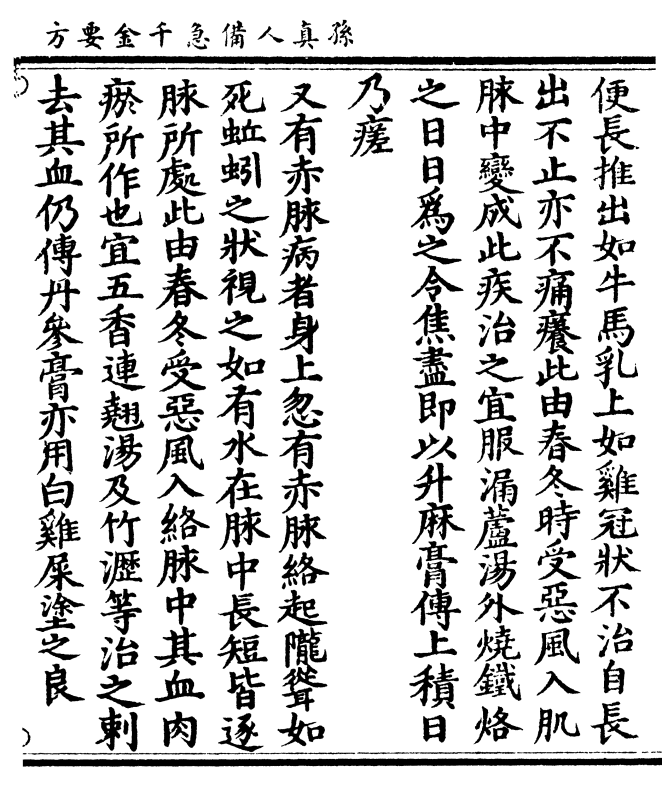 孫真人備急千金要方
便長推出如牛馬乳上如雞冠狀不治自長
出不止亦不痛癢此由春冬時受惡風入肌
脉中變成此疾治之宜服漏蘆湯外燒鐵烙
之日日爲之令焦盡即以升麻膏傅上積日
乃瘥
又有赤脉病者身上忽有赤脉絡起隴聳如
死蚯蚓之狀視之如有水在脉中長短皆逐
脉所處此由春冬受惡風入絡脉中其血肉
瘀所作也宜五香連翹湯及竹瀝等治之刺
去其血仍傅丹參膏亦用白雞屎塗之良